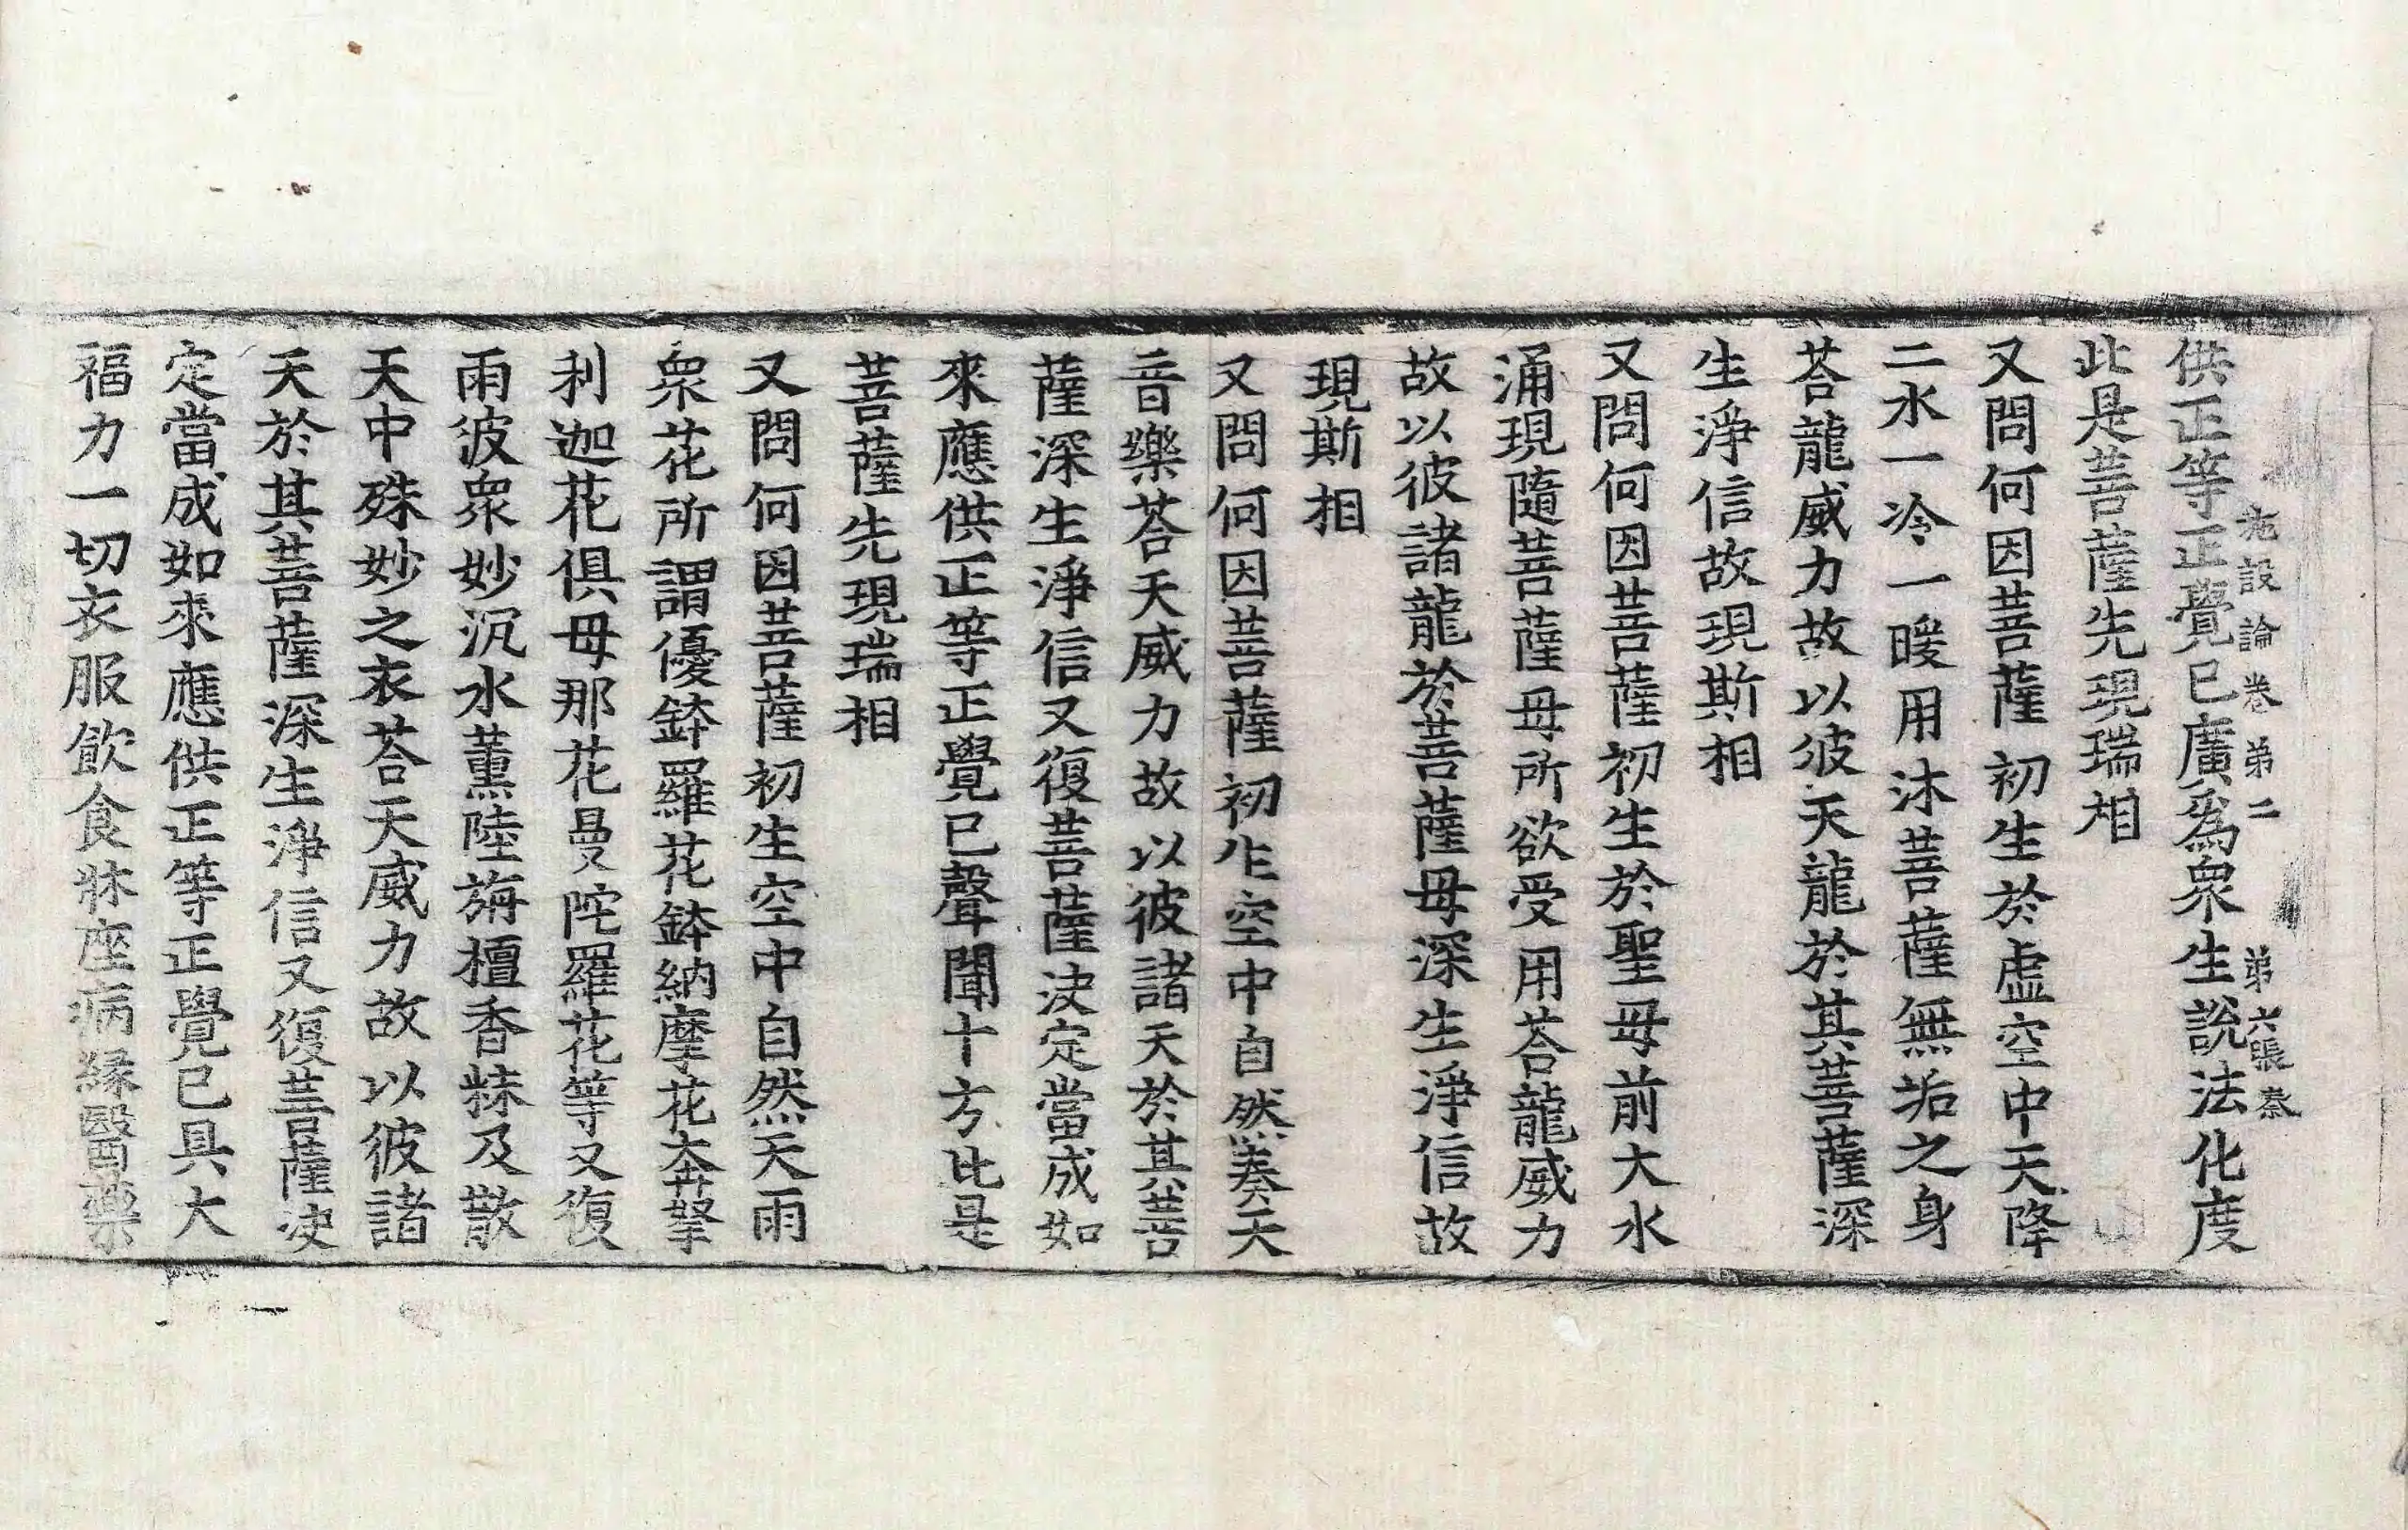 施設論卷第二 第六張 泰
供正等正覺已廣爲衆生說法化度
此是菩薩先現瑞相
又問何因菩薩初生於虛空中天降
二水一冷一暖用沐菩薩無垢之身
荅龍威力故以彼天龍於其菩薩深
生淨信故現斯相
又問何因菩薩初生於聖母前大水
涌現隨菩薩母所欲受用荅龍威力
故以彼諸龍於菩薩母深生淨信故
現斯相
又問何因菩薩初生空中自然奏天
音樂荅天威力故以彼諸天於其菩
薩深生淨信又復菩薩决定當成如
來應供正等正覺已聲聞十方此是
菩薩先現瑞相
又問何因菩薩初生空中自然天雨
衆花所謂優鉢羅花鉢納摩花奔拏
利迦花俱母那花曼陀羅花等又復
雨彼衆妙沉水薰陸旃檀香粖及散
天中殊妙之衣荅天威力故以彼諸
天於其菩薩深生淨信又復菩薩决
定當成如來應供正等正覺已具大
福力一切衣服飲食牀座病緣醫藥